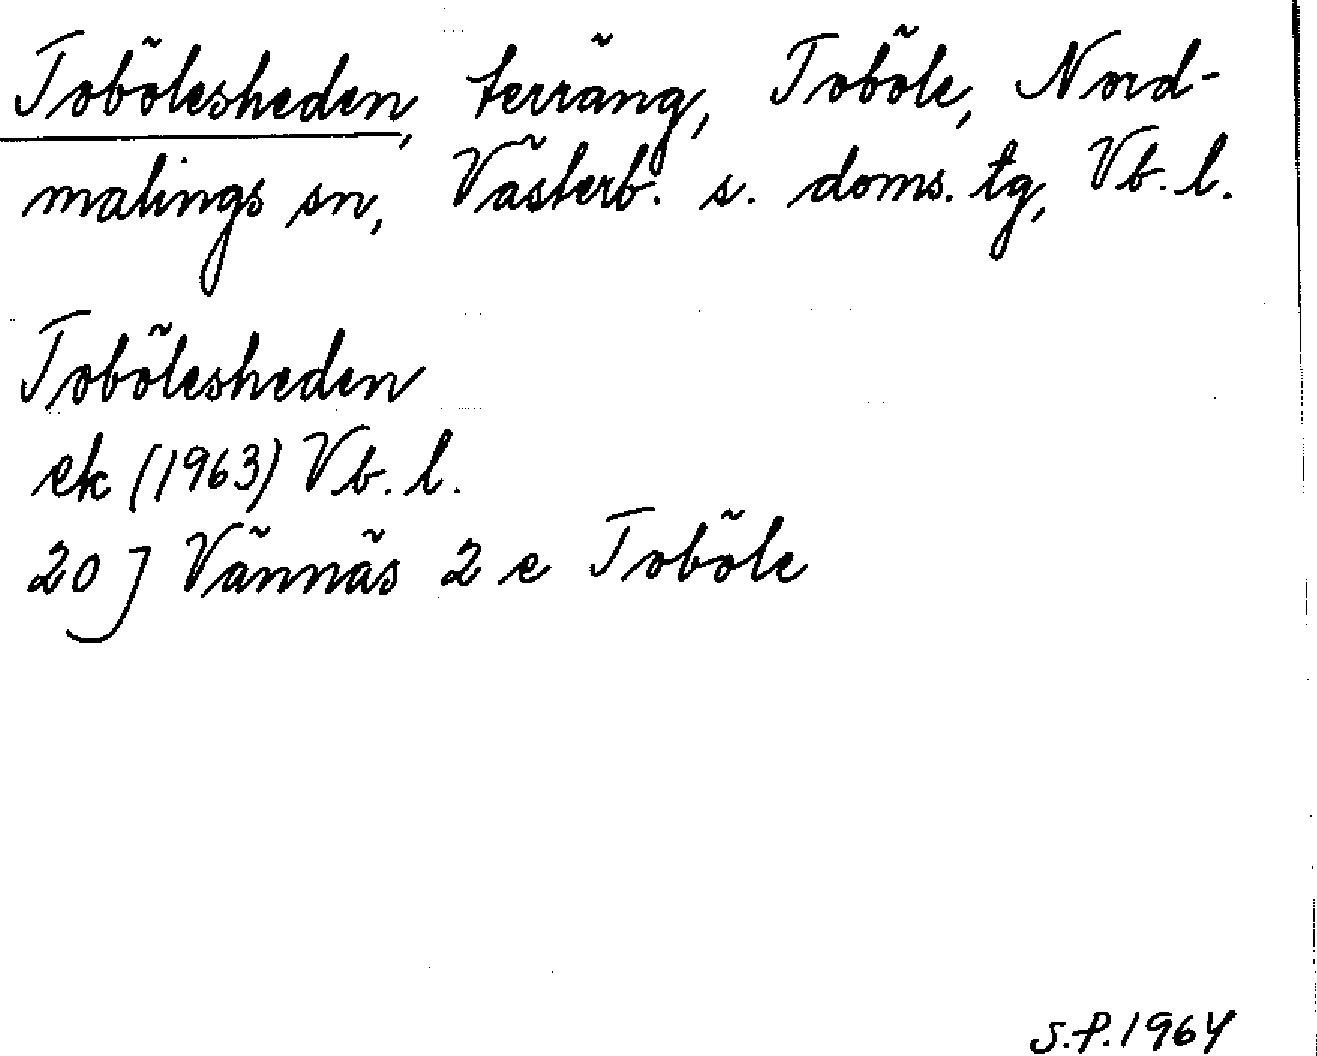 Tobölesheden, terräng, Toböle, Nord-
malings sn, Västerb. s. doms. tg, Vb. l.
Tobölesheden
ek (1963) Vb. l.
20 J Vännäs 2 e Toböle
S.P. 1964